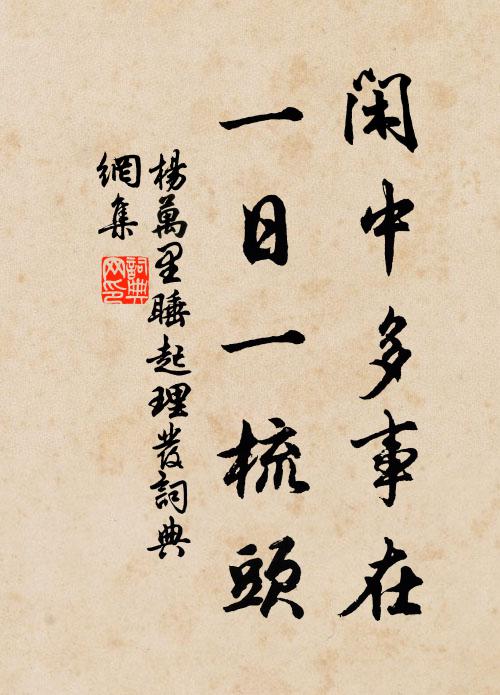 閑中多事在
一日一梳頭
楊萬里睡起理發詞典
網集
詞典
网印